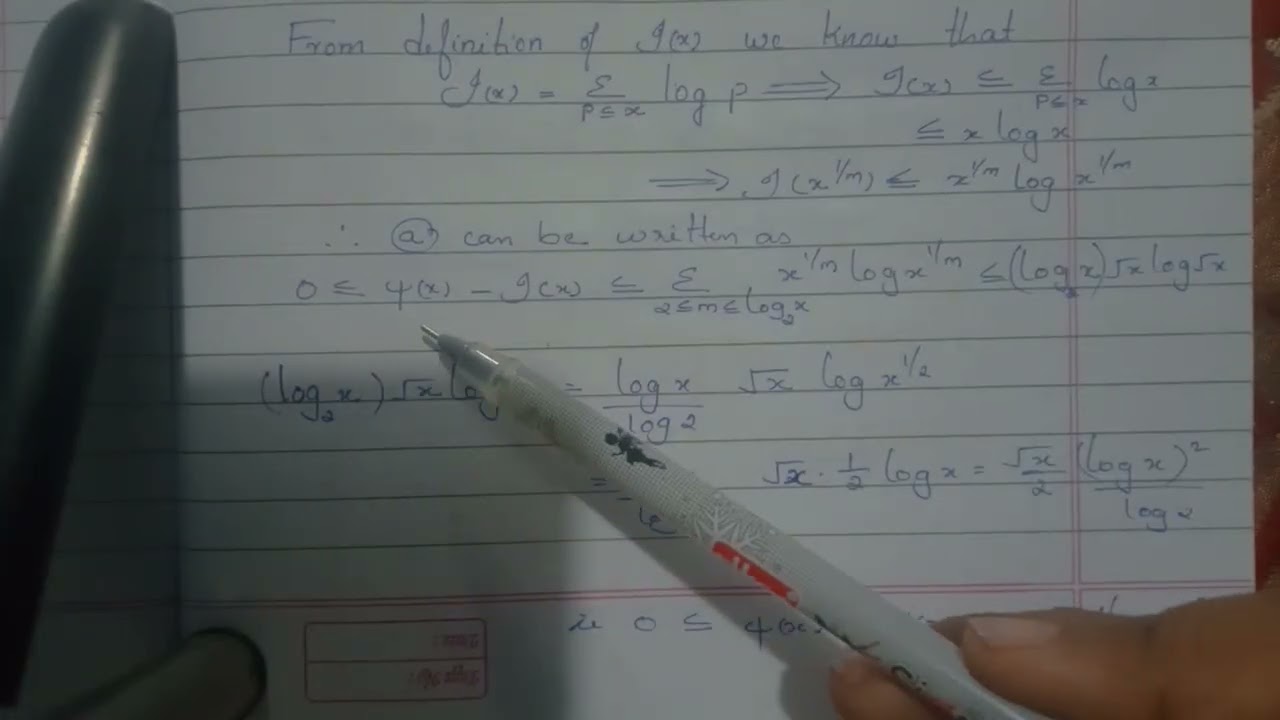 From definition of ϑ(x) we know that
ϑ(x) = Σ_{p≤x} log p ⟹ ϑ(x) ≤ Σ_{p≤x} log x
≤ x log x
⟹ ϑ(x^{1/m}) ≤ x^{1/m} log x^{1/m}
∴ ⓐ can be written as
0 ≤ ψ(x) − ϑ(x) ≤ Σ_{2≤m≤log₂x} x^{1/m} log x^{1/m} ≤ (log₂x) √x log √x
(log₂x) √x log = log x / log 2 √x log x^{1/2}
= √x · 1/2 log x = √x/2 (log x)²/log 2
ie 0 ≤ ψ(x)